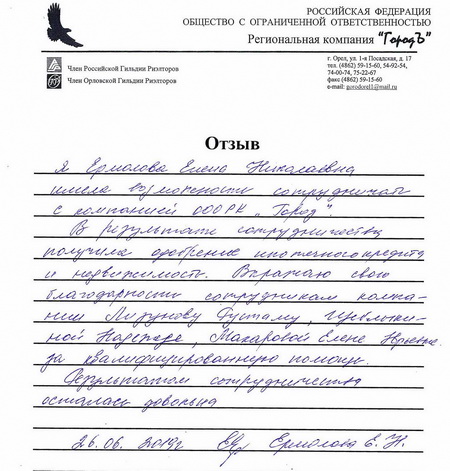 РОССИЙСКАЯ ФЕДЕРАЦИЯ
ОБЩЕСТВО С ОГРАНИЧЕННОЙ ОТВЕТСТВЕННОСТЬЮ
Региональная компания "Городъ"
Член Российской Гильдии Риэлторов
Член Орловской Гильдии Риэлторов
г. Орел, ул. 1-я Посадская, д. 17
тел. (4862) 59-15-60, 54-92-54,
74-00-74, 75-22-67
факс (4862) 59-15-60
e-mail: gorodorel1@mail.ru
Отзыв
Я Ермолова Елена Николаевна
имела возможность сотрудничать
с компанией ООО РК "Город"
В результате сотрудничества
получила одобрение ипотечного кредита
и недвижимость. Выражаю свою
благодарность сотрудникам компа-
нии Рустаму,
Макаровой Елене
за квалифицированную помощь.
Результатом сотрудничества
осталась довольна
26.06.2019г Ермолова Е. Н.